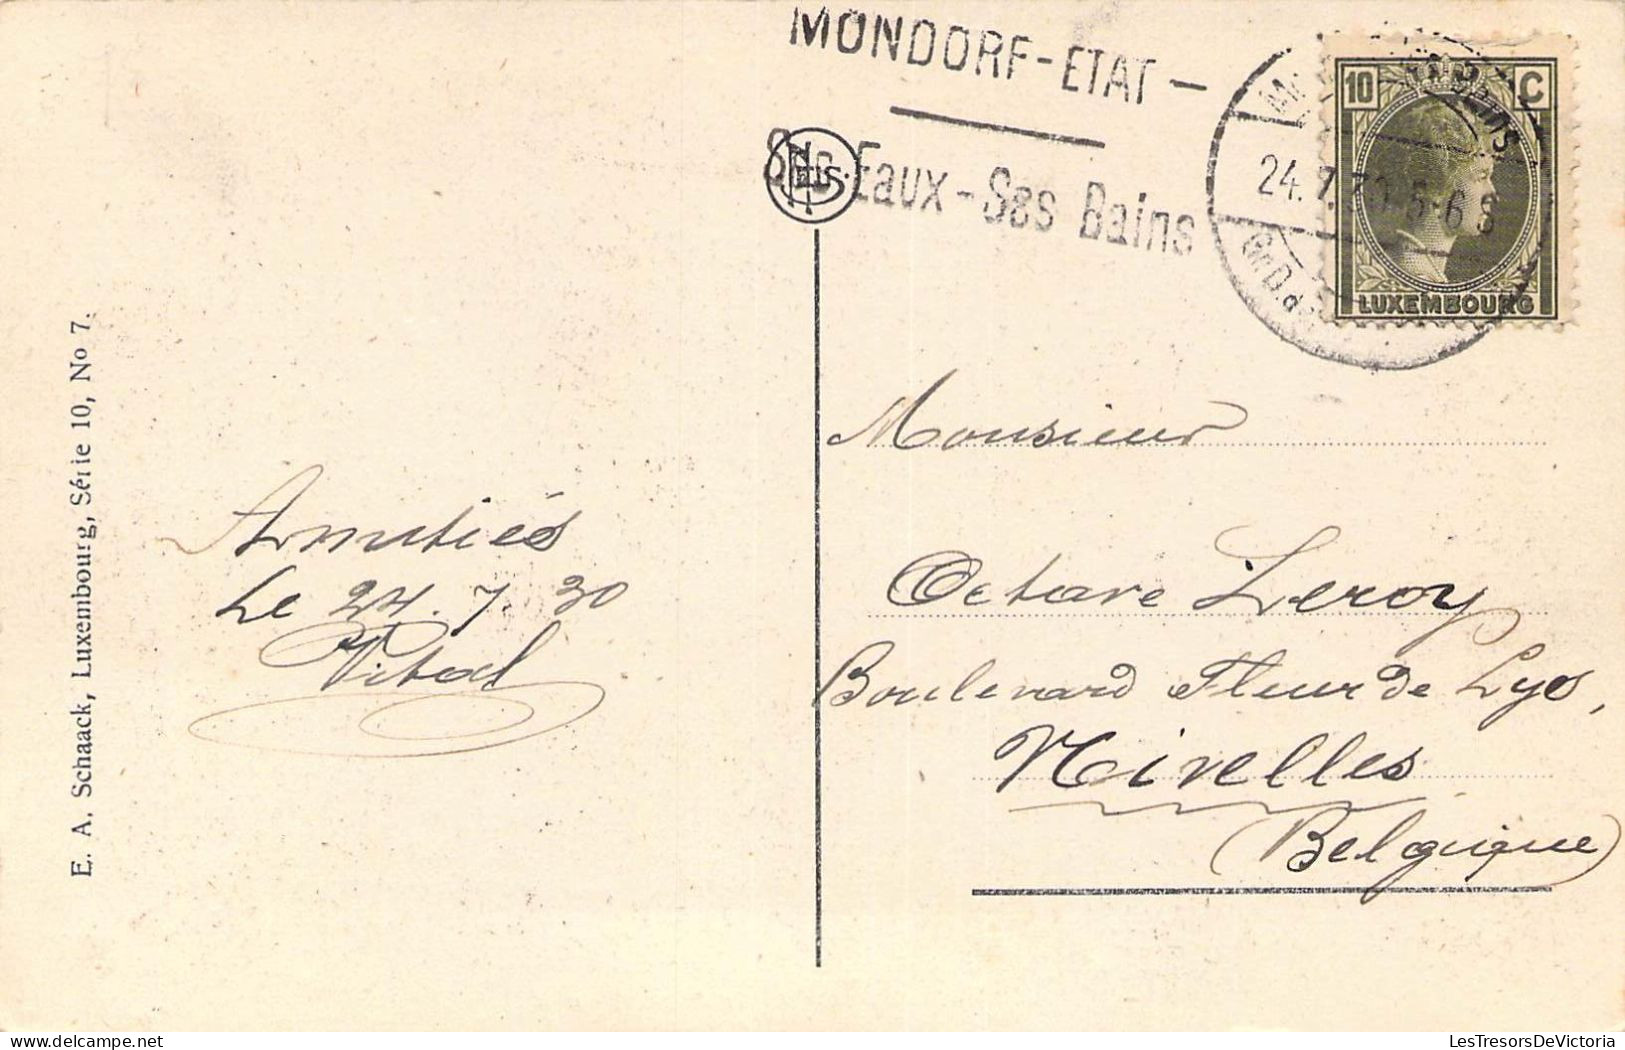 MONDORF-ETAT —
Ses Eaux - Ses Bains
NELS
10 C
LUXEMBOURG
Bains
24.7.30.5-6 S
Gr.D.d
E. A. Schaack, Luxembourg, Série 10, No 7.
Amitiés
Le 24. 7. 30
Vital
Monsieur
Octave Leroy
Boulevard Fleur de Lys,
Nivelles
(Belgique)
LesTresorsDeVictoria - Delcampe.net